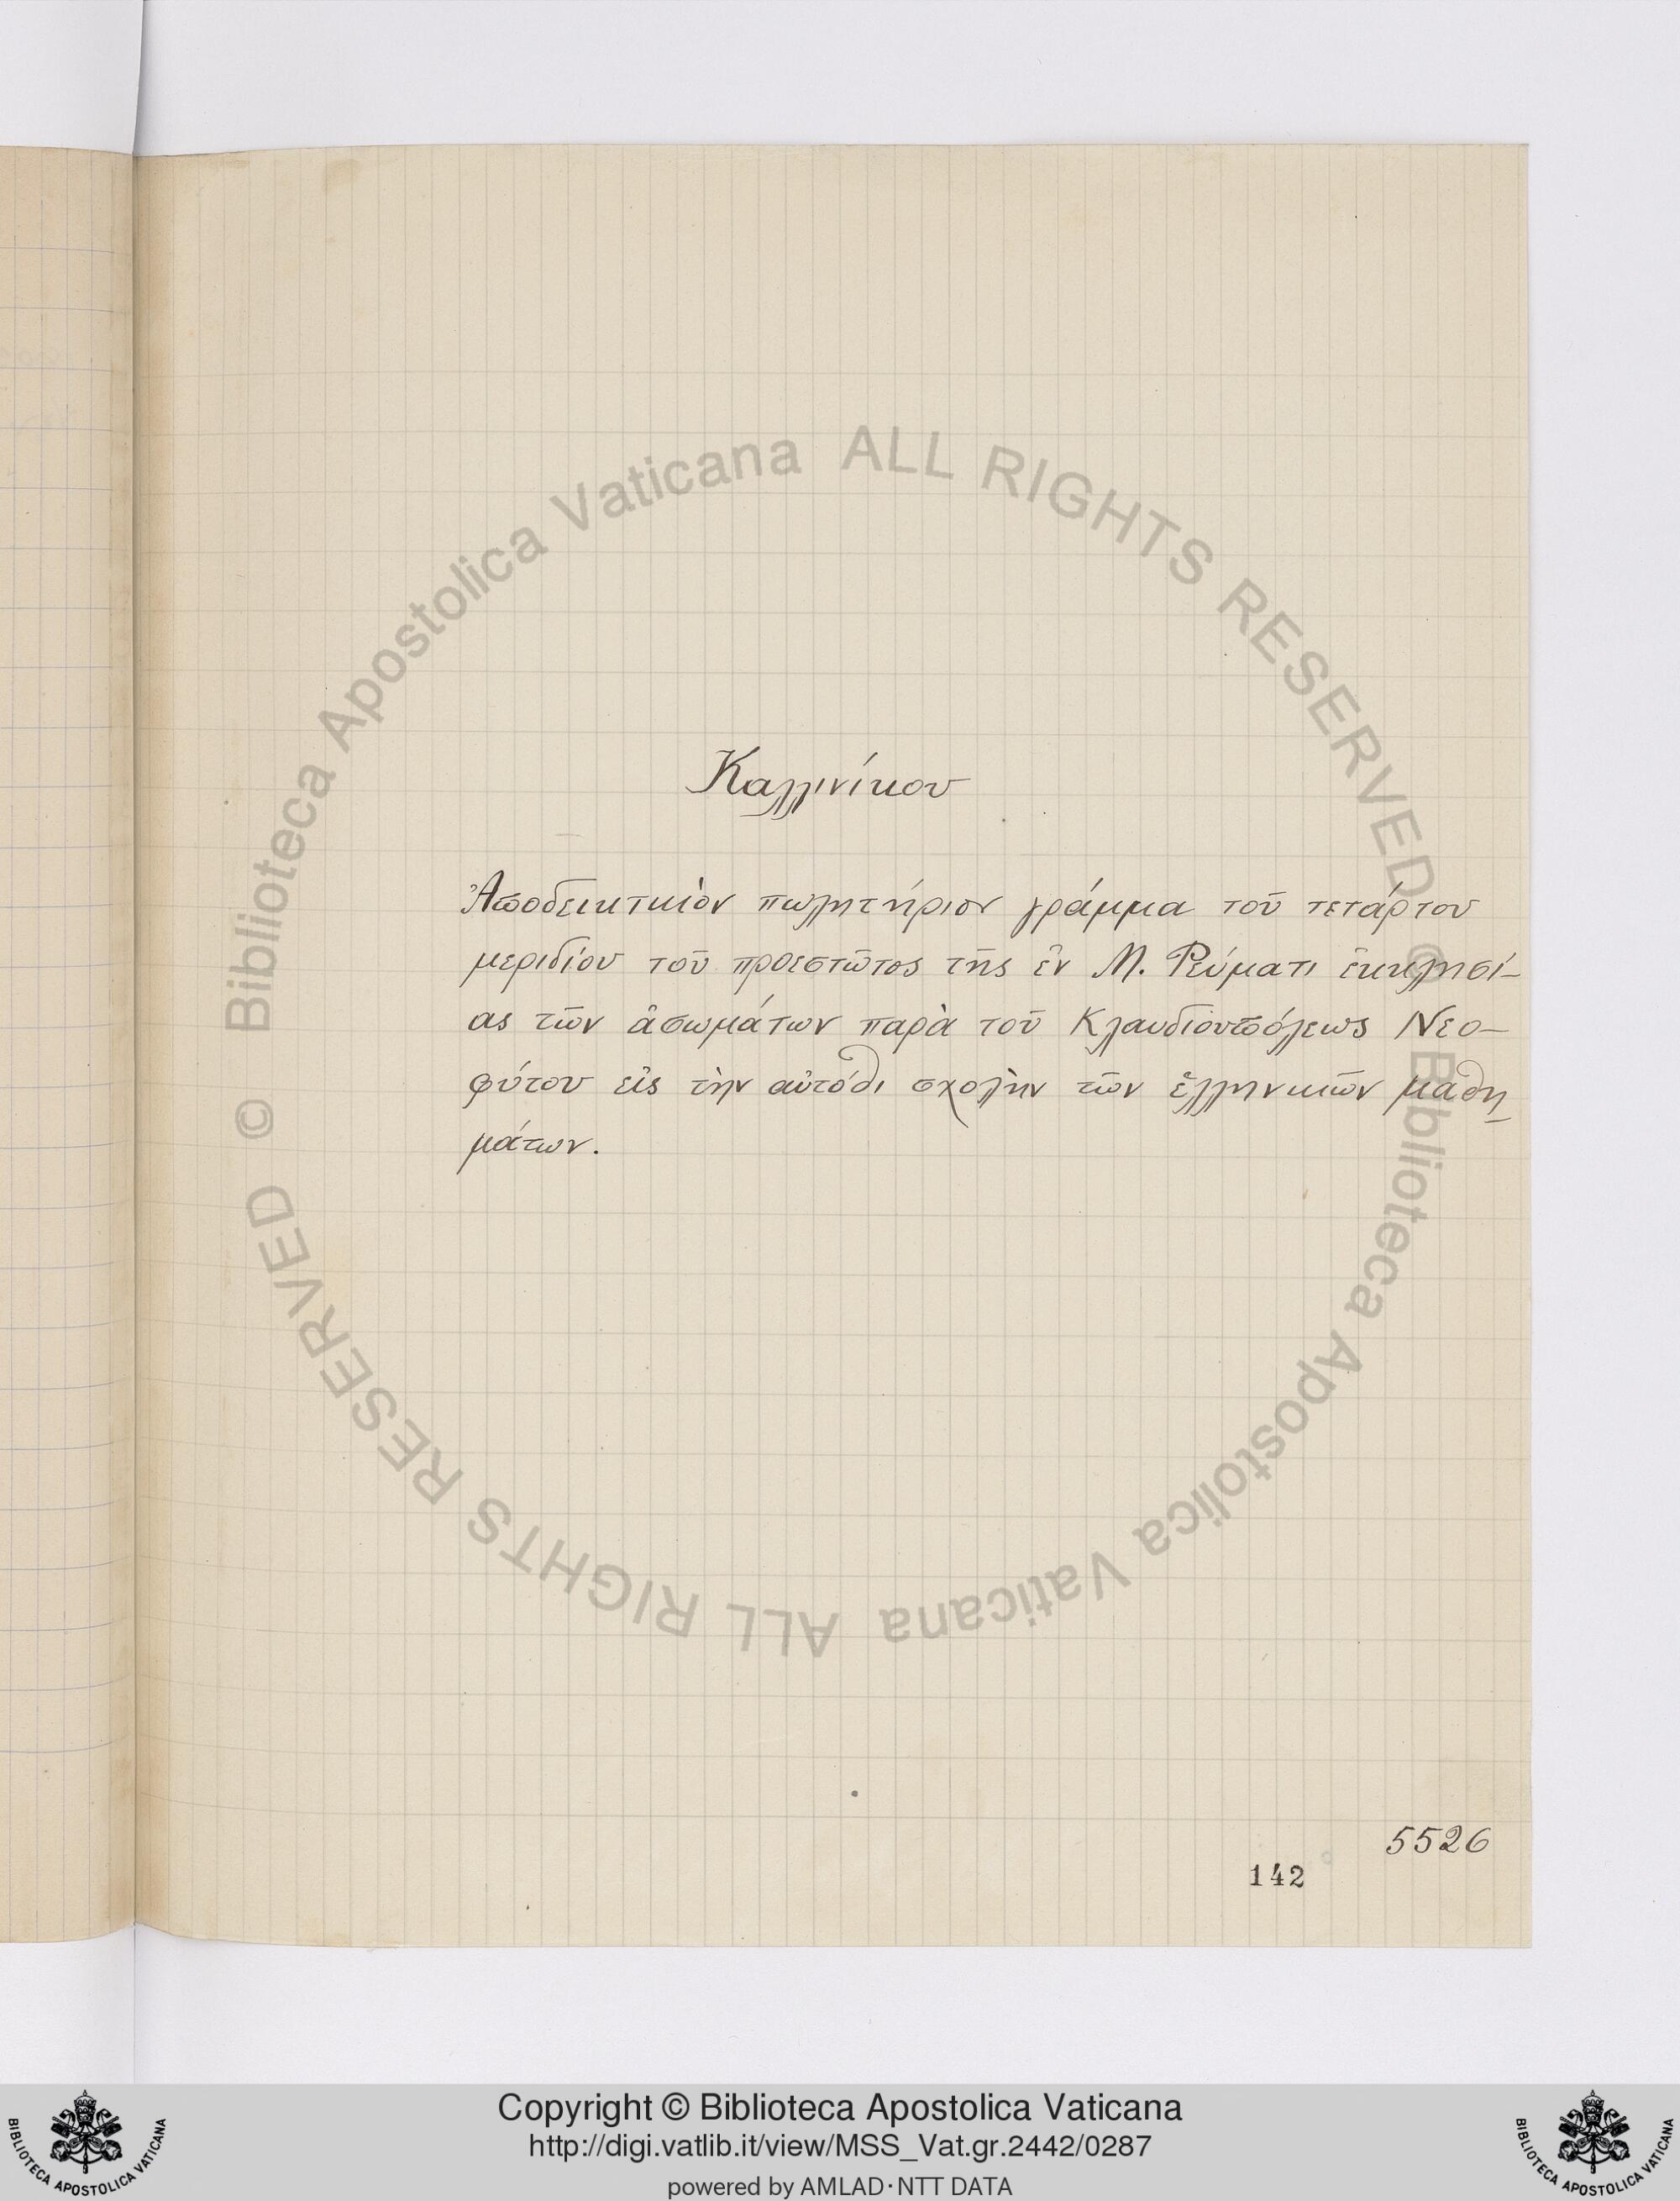 Καλλινίκου
Ἀποδεικτικὸν πωλητήριον γράμμα τοῦ τετάρτου
μεριδίου τοῦ προεστῶτος τῆς ἐν Μ. Ρεύματι ἐκκλησί-
ας τῶν ἀσωμάτων παρὰ τοῦ Κλαυδιουπόλεως Νεο-
φύτου εἰς τὴν αὐτόθι σχολὴν τῶν ἑλληνικῶν μαθη-
μάτων.
5526
142
Biblioteca Apostolica Vaticana ALL RIGHTS RESERVED ©
Biblioteca Apostolica Vaticana ALL RIGHTS RESERVED ©
Copyright © Biblioteca Apostolica Vaticana
http://digi.vatlib.it/view/MSS_Vat.gr.2442/0287
powered by AMLAD·NTT DATA
BIBLIOTECA APOSTOLICA VATICANA
BIBLIOTECA APOSTOLICA VATICANA